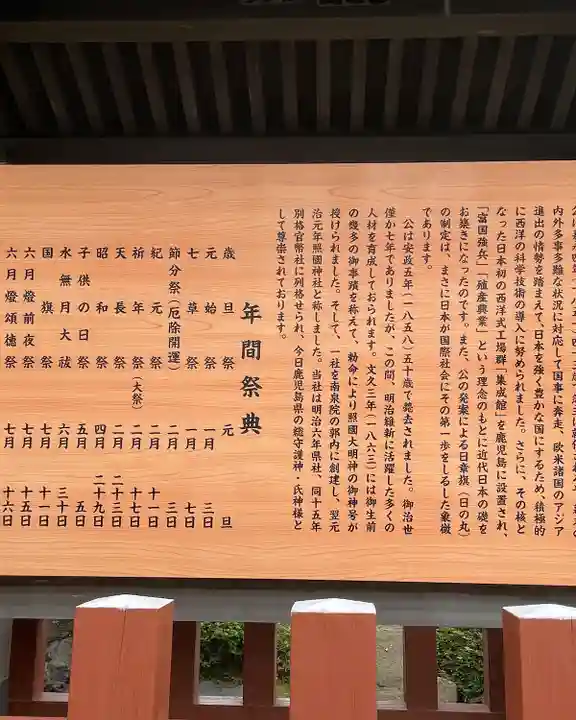 内外多事多難な状況に対応して国事に奔走、欧米諸国のアジア
進出の情勢を踏まえて、日本を強く豊かな国にするため、積極的
に西洋の科学技術の導入に努められました。さらに、その核と
なった日本初の西洋式工場群「集成館」を鹿児島に設置され、
「富国強兵」「殖産興業」という理念のもとに近代日本の礎を
お築きになったのです。また、公の発案による日章旗(日の丸)
の制定は、まさに日本が国際社会にその第一歩をしるした象徴
であります。
公は安政五年(一八五八)五十歳で薨去されました。御治世
僅か七年でありましたが、この間、明治維新に活躍した多くの
人材を育成しておられます。文久三年(一八六三)には御生前
の幾多の御事蹟を称えて、勅命により照國大明神の御神号が
授けられました。そして、一社を南泉院の郭内に創建し、翌元
治元年照國神社と称しました。当社は明治六年県社、同十五年
別格官幣社に列格せられ、今日鹿児島県の総守護神・氏神様と
して尊崇されております。
年間祭典
歳旦祭 元旦
元始祭 一月三日
七草祭 一月七日
節分祭(厄除開運) 二月三日
紀元祭 二月十一日
祈年祭(大祭) 二月十七日
天長祭 二月二十三日
昭和祭 四月二十九日
子供の日祭 五月五日
水無月大祓 六月三十日
国旗祭 七月十一日
六月燈前夜祭 七月十五日
六月燈頌徳祭 七月十六日